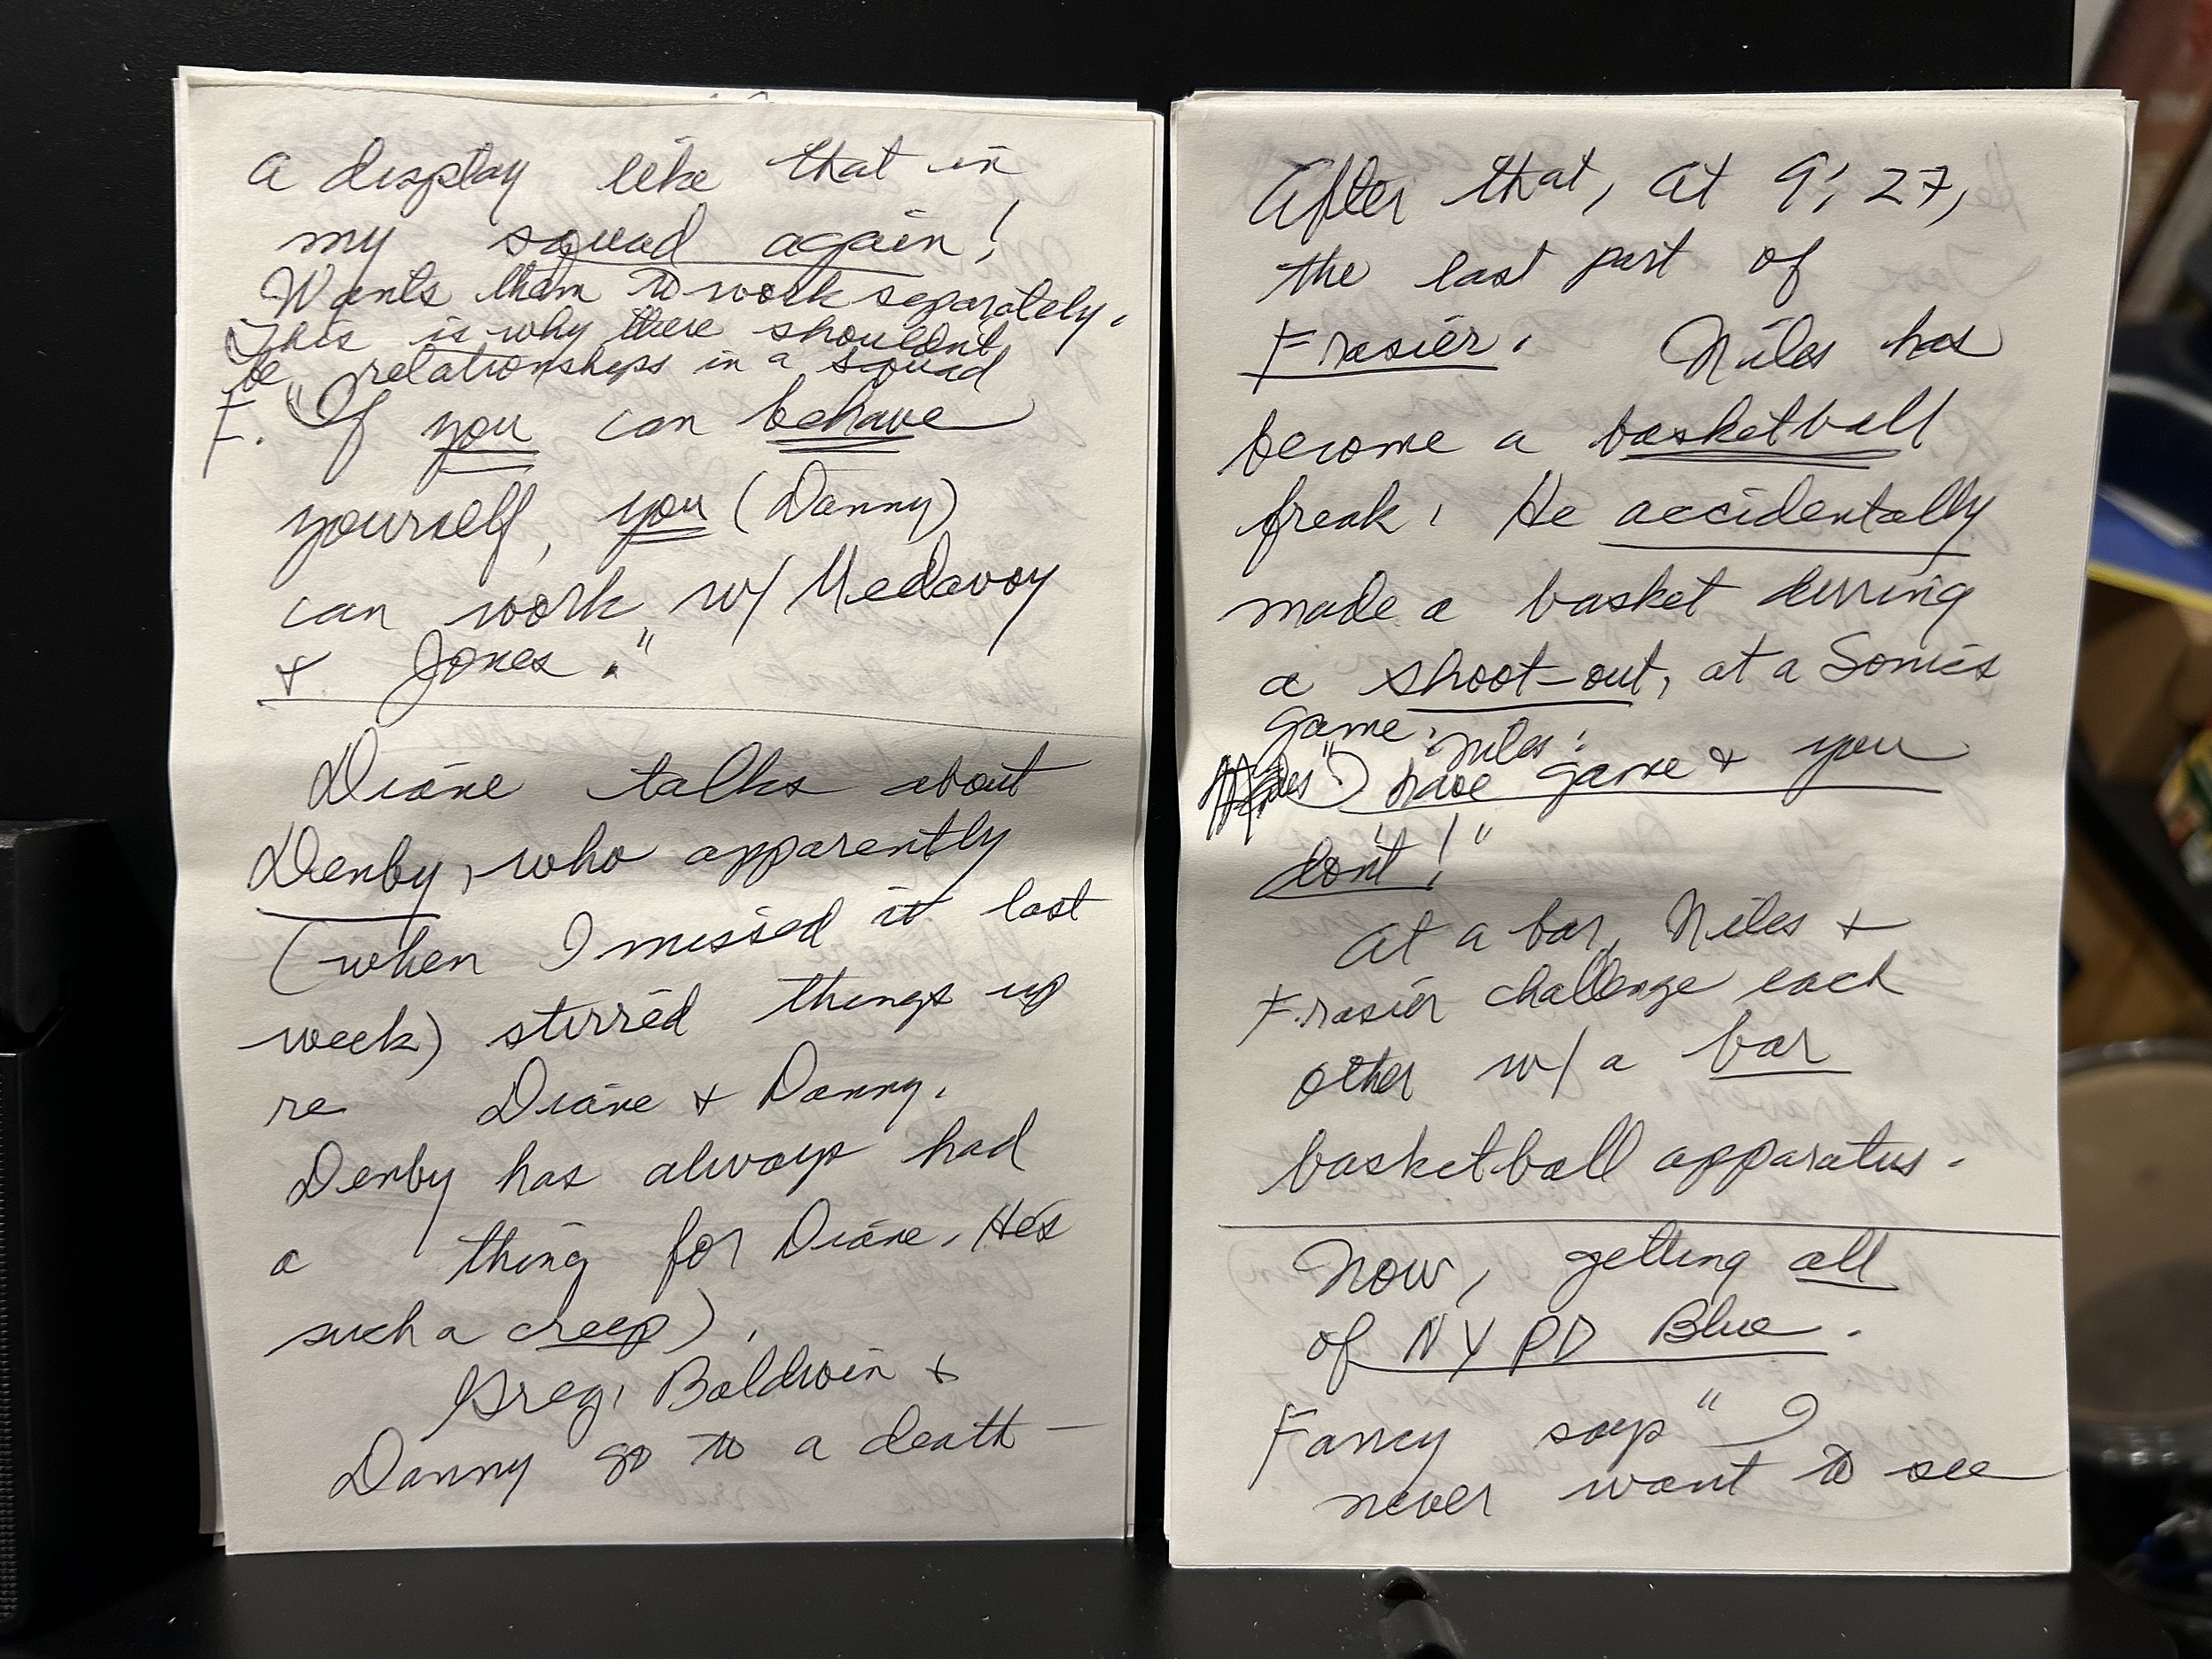 a display like that in
my squad again!
Wants them to work separately.
This is why there shouldn't
be relationships in a squad
F. "If you can behave
yourself, you (Danny)
can work w/ Medavoy
& Jones."
Diane talks about
Denby, who apparently
(when I missed it last
week) stirred things up
re Diane & Danny.
Denby has always had
a thing for Diane. He's
such a creep).
Greg, Baldwin &
Danny go to a death-
After that, at 9:27,
the last part of
Frasier. Niles has
become a basketball
freak. He accidentally
made a basket durring
a shoot-out, at a Sonics
game. Niles:
"I have game & you
don't!"
At a bar, Niles &
Frasier challenge each
other w/ a bar
basketball apparatus.
Now, getting all
of NYPD Blue.
Fancy says "I
never want to see